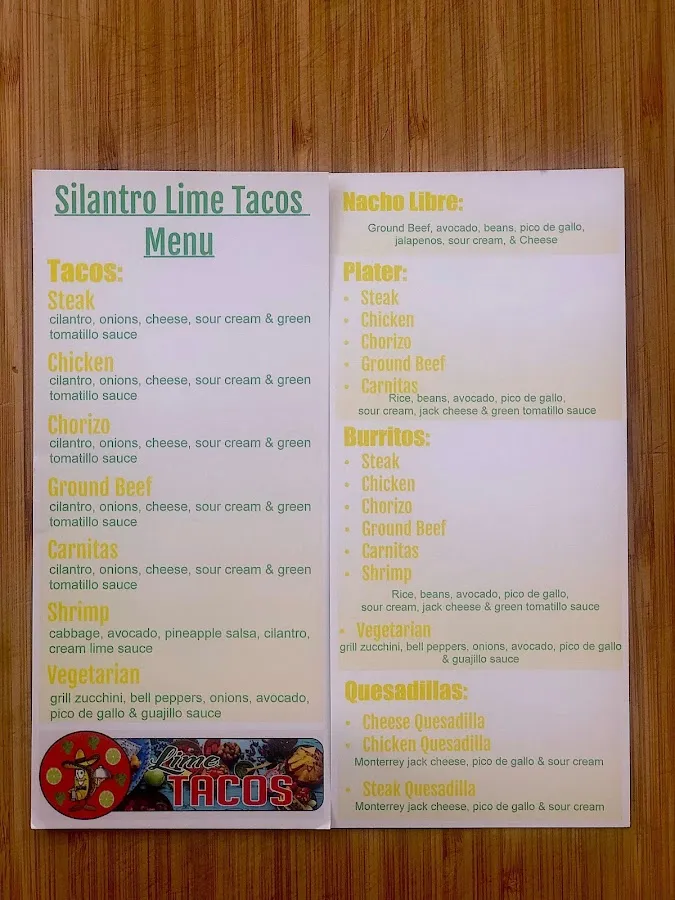 Silantro Lime Tacos
Menu
Tacos:
Steak
cilantro, onions, cheese, sour cream & green
tomatillo sauce
Chicken
cilantro, onions, cheese, sour cream & green
tomatillo sauce
Chorizo
cilantro, onions, cheese, sour cream & green
tomatillo sauce
Ground Beef
cilantro, onions, cheese, sour cream & green
tomatillo sauce
Carnitas
cilantro, onions, cheese, sour cream & green
tomatillo sauce
Shrimp
cabbage, avocado, pineapple salsa, cilantro,
cream lime sauce
Vegetarian
grill zucchini, bell peppers, onions, avocado,
pico de gallo & guajillo sauce
Lime
TACOS
Nacho Libre:
Ground Beef, avocado, beans, pico de gallo,
jalapenos, sour cream, & Cheese
Plater:
• Steak
• Chicken
• Chorizo
• Ground Beef
• Carnitas
Rice, beans, avocado, pico de gallo,
sour cream, jack cheese & green tomatillo sauce
Burritos:
• Steak
• Chicken
• Chorizo
• Ground Beef
• Carnitas
• Shrimp
Rice, beans, avocado, pico de gallo,
sour cream, jack cheese & green tomatillo sauce
• Vegetarian
grill zucchini, bell peppers, onions, avocado, pico de gallo
& guajillo sauce
Quesadillas:
• Cheese Quesadilla
• Chicken Quesadilla
Monterrey jack cheese, pico de gallo & sour cream
• Steak Quesadilla
Monterrey jack cheese, pico de gallo & sour cream